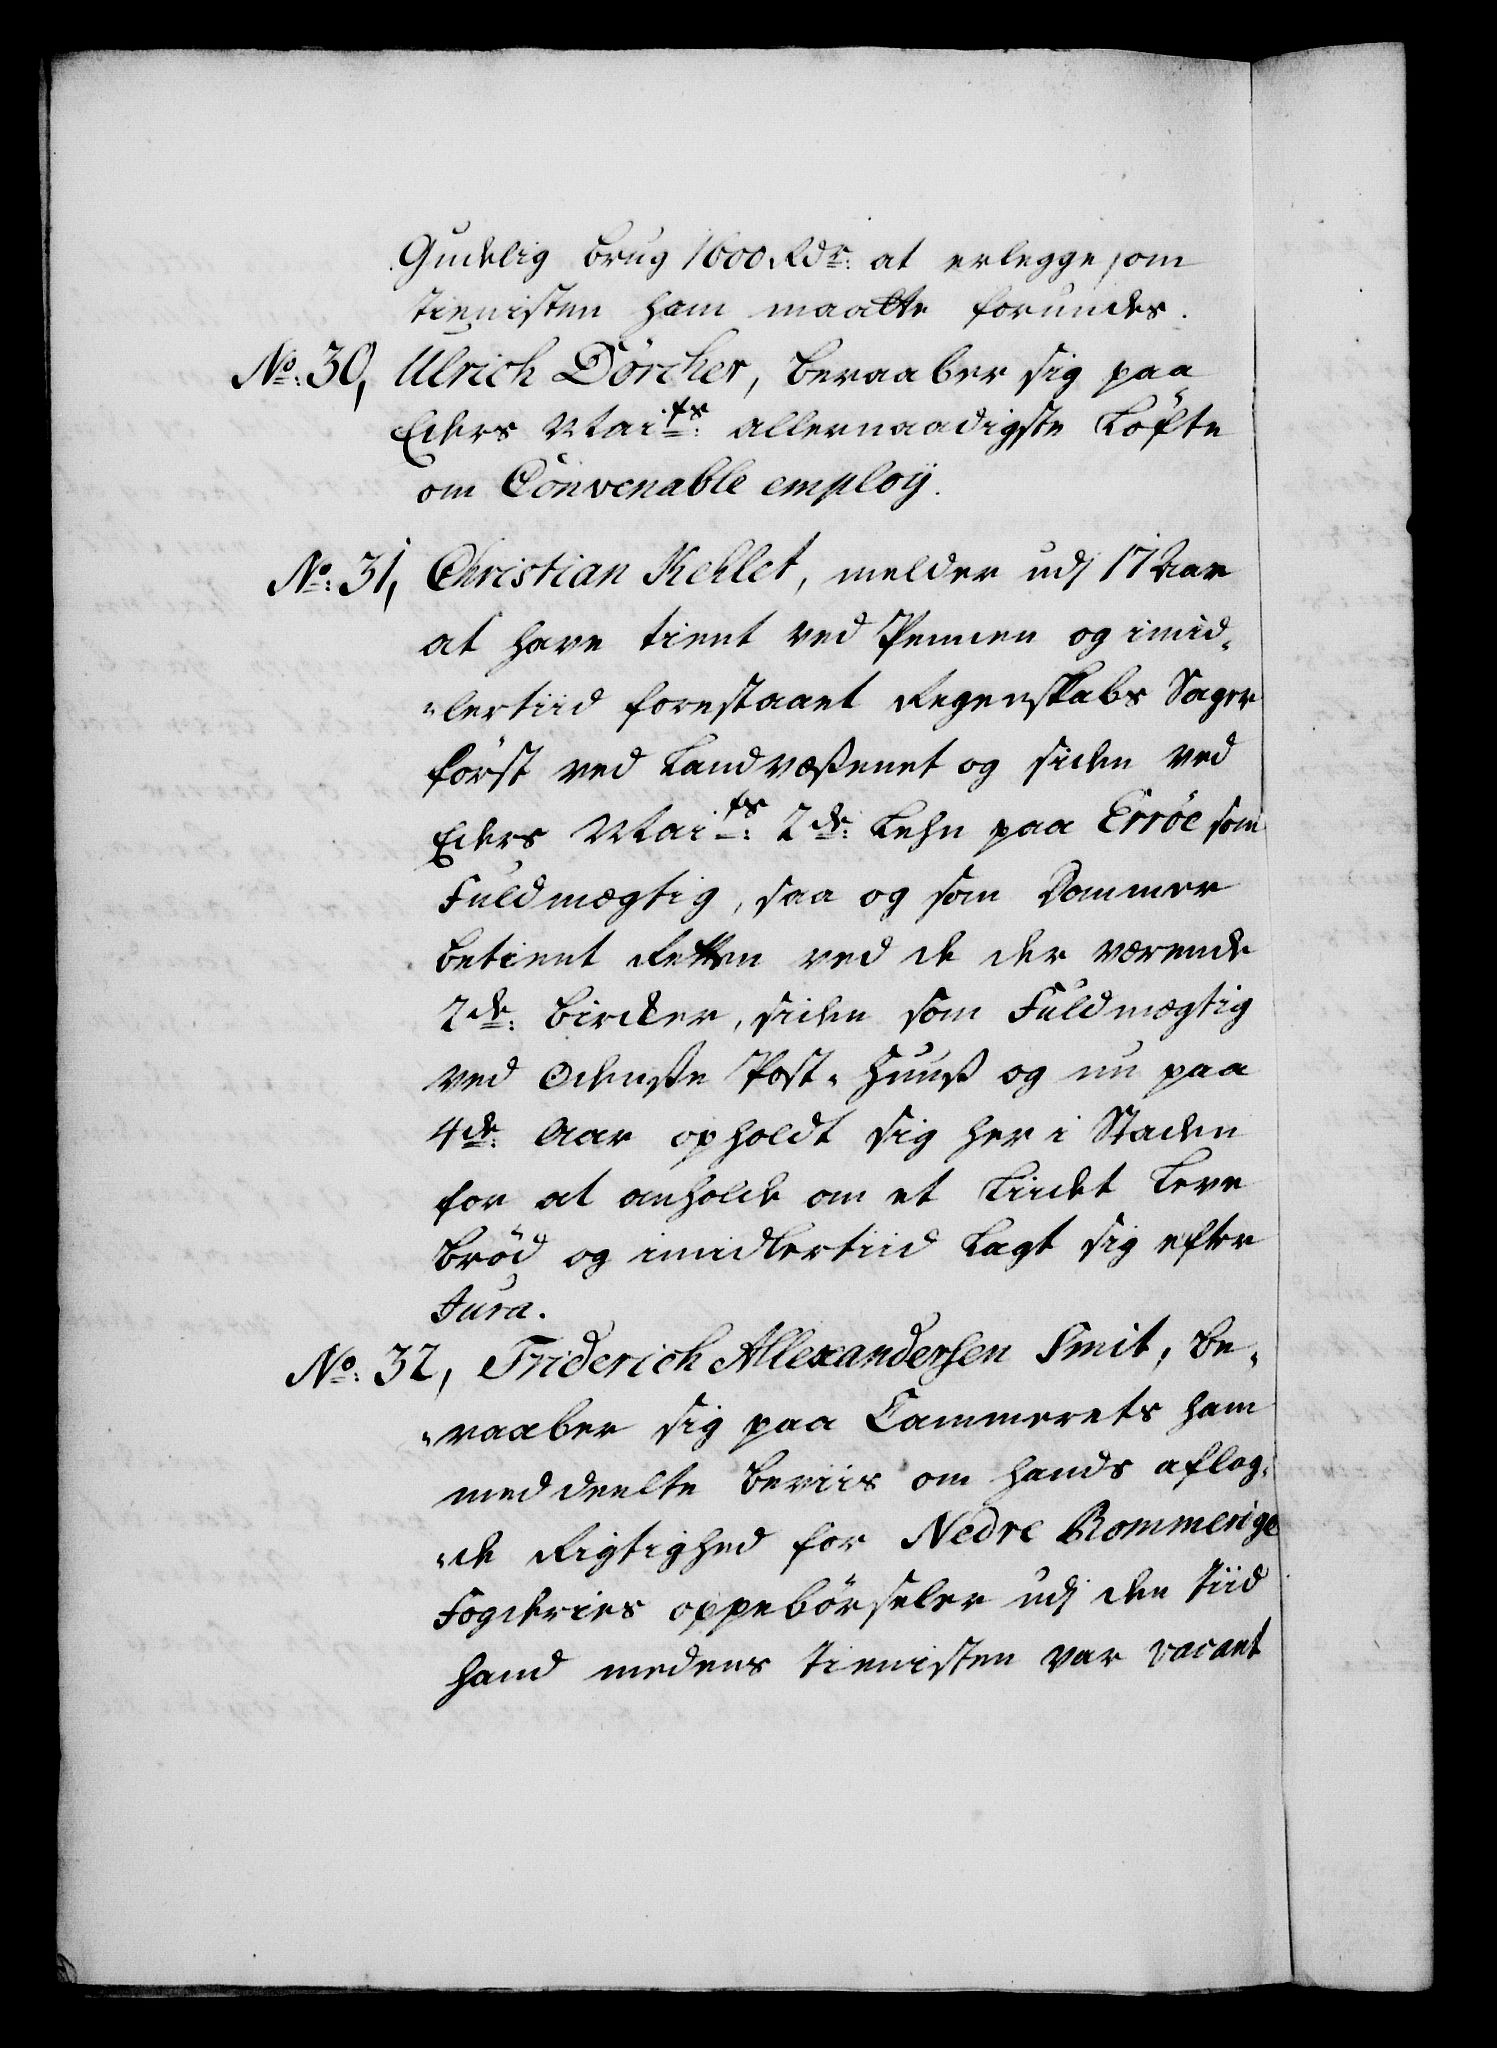 Gudelig brug 1600 Rdr: at erlegge, som
tienisten ham maatte forundes.
No: 30, Ulrich Dörcher, beraaber sig paa
Eders Maits: allernaadigste Löfte
om Convenable employ.
No: 31, Christian Kehlet, melder udj 17 Aar
at have tient ved Pennen og imid„
„lertiid forestaaet Regenskabs Sager
först ved Landvæßenet og siden ved
Eders Maits: 2de: Lehn paa Erröe som
Fuldmægtig, saa og som Dommer
betient Retten ved de der værende
2de: Bircker, siden som Fuldmægtig
ved Odenße Post-Huuß og nu paa
4de: Aar opholdt sig her i Staden
for at anholde om et Lidet Leve
bröd og imidlertiid lagt sig efter
Jura.
No: 32, Friderich Allexandersen Smit, be„
„raaber sig paa Cammerets ham
meddeelte beviis om hands aflag„
„de Rigtighed for Nedre Rommerige
Fogderies oppebörseler udj den tiid
hand medens tienisten var vacant